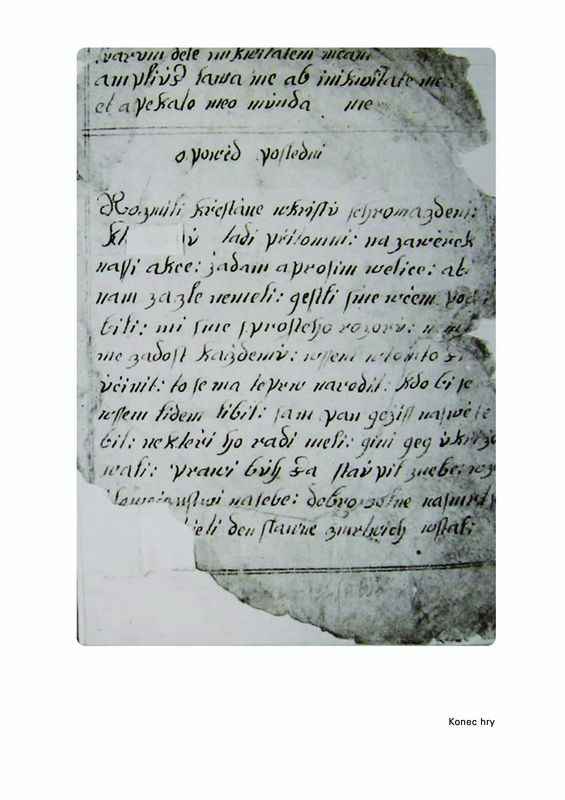 dele inikwitatem meam
ampliús lawa me ab inikwitate me
et a pekato meo múnda me
opowěd posledni
Rozmili křestiane wkristú schromazdeni:
ú ladi přitomni: na zawěrek
nassi akce: žadam a prosim welice: ab
nam za zle nemeli: gestli sme wčem
bili: mi sme sprosteho rozomú:
me zadost každemú: wssem w tomto
účinit: to se ma teprw narodit: kdo bi se
wssem lidem libil: sam pan gežiss na swěte
bil: nekteři ho radi meli: gini geg úkrižo
wali: prawi búh sa staúpil znebe:
na sebe: dobrowolne na smrt
den slawne zmrtwich wstal:
Konec hry